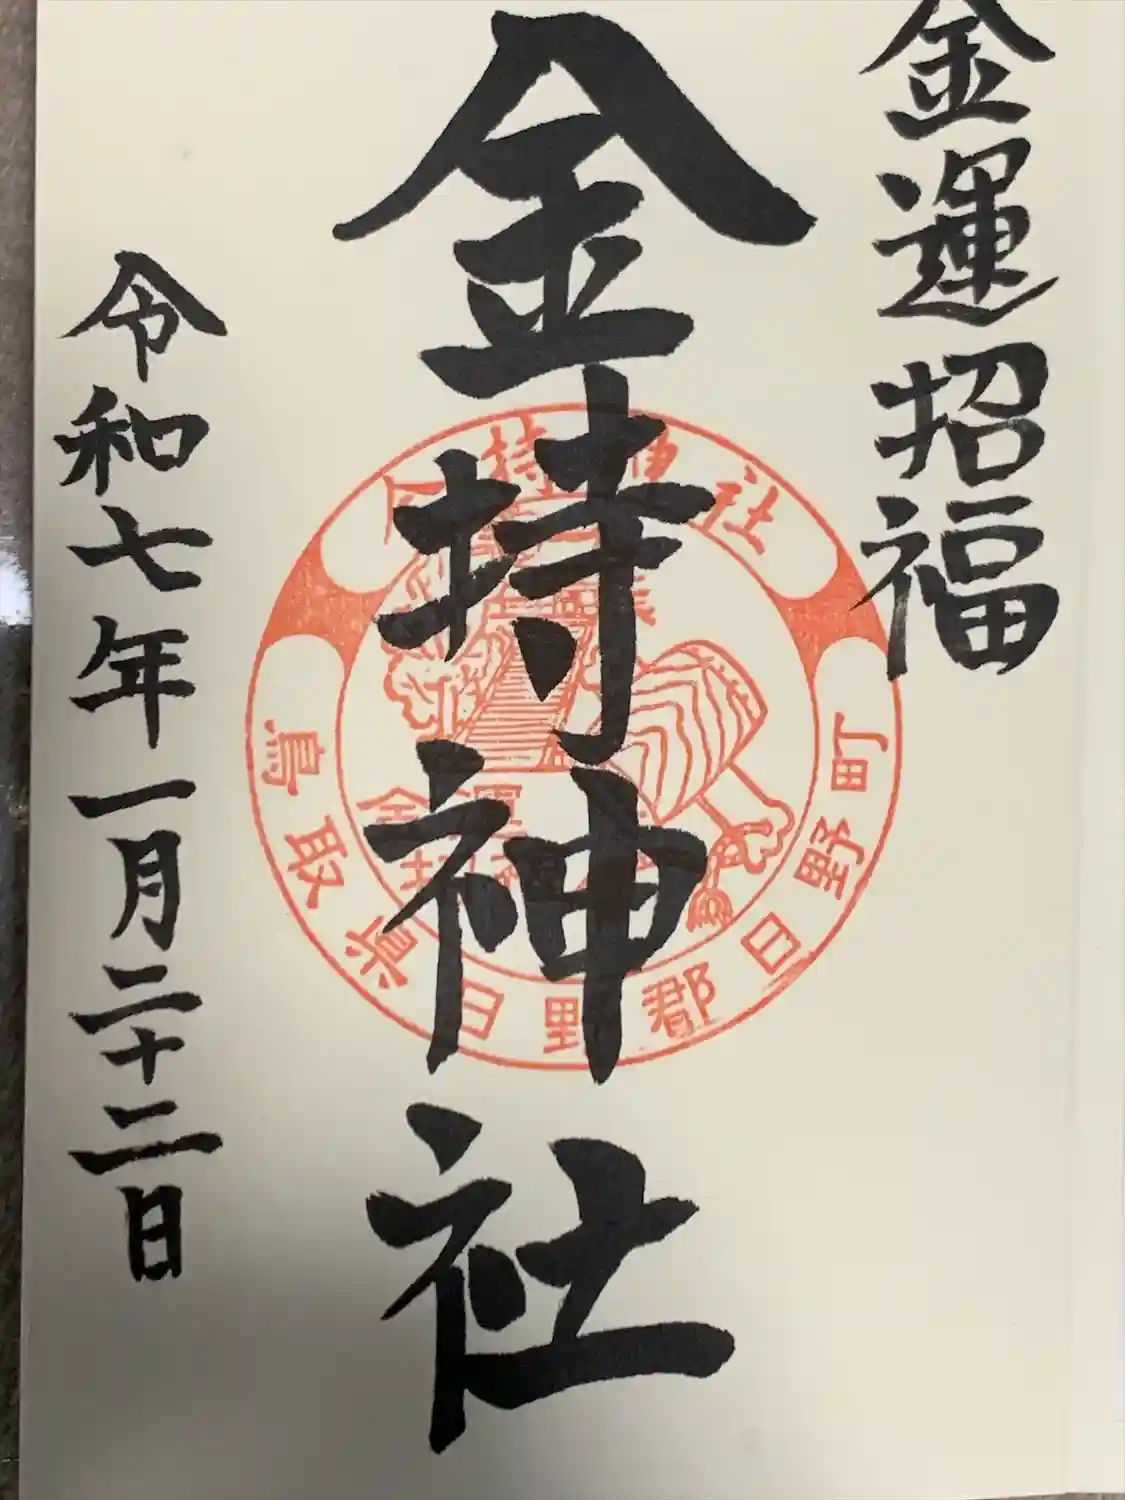 金運招福
金持神社
令和七年一月二十二日
金持神社
鳥取県日野郡日野町
金運
招福